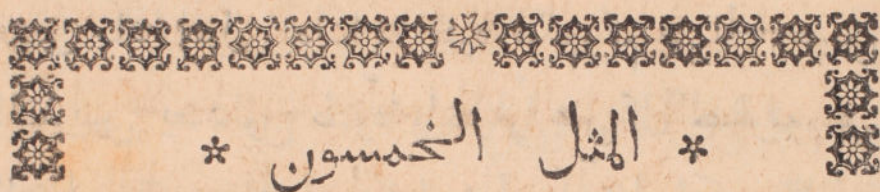 * المثل الخمسون *